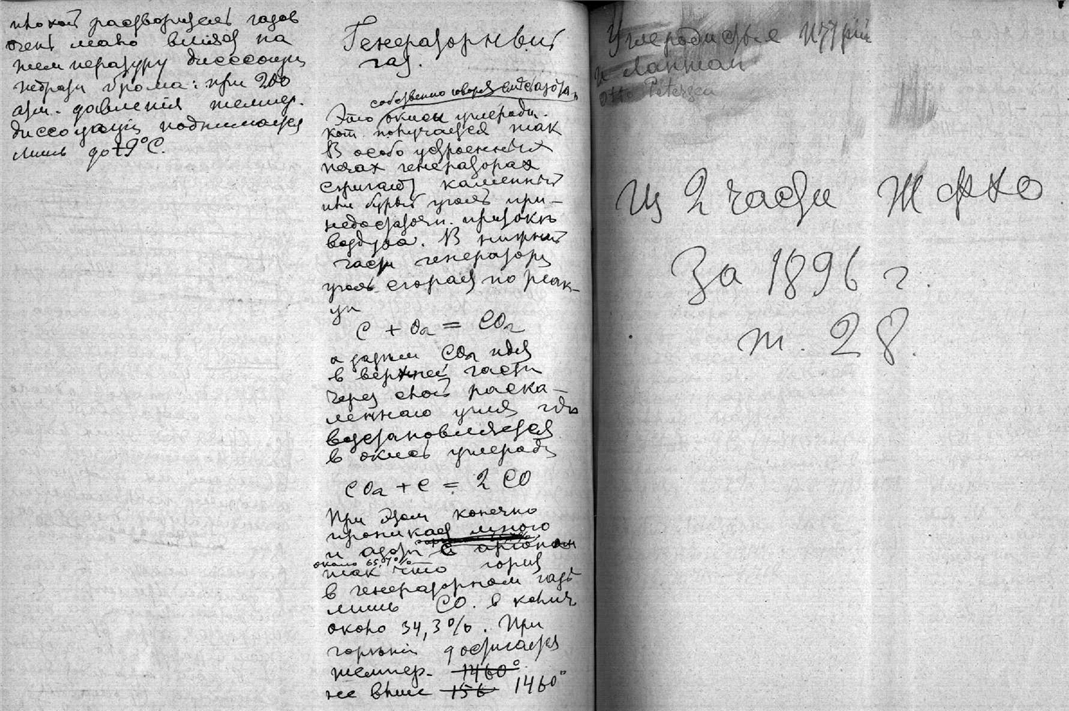 плохой растворитель газов
очень мало влияя на
температуру диссоциац
гидрата брома: при 200
атм. давленія темпер.
диссоціаціи поднимается
лишь до +9°С.
Генераторный
газ.
собственно говоря смесь азота
Это окись углерода.
кот получается так
В особо устроенных
печах генераторах
сжигают каменный
или бурый уголь при
недостаточн. притокѣ
воздуха. В нижней
части генератора
уголь сгорает по реак-
ціи
C + O2 = CO2
а затем CO2 идя
в верхней части
через слой раска-
леннаго угля гдѣ
возстановляется
в окись углерода
CO2 + C = 2 CO
При этом конечно
проникает много
и азота с аргоном
около 65,7%
так что горит
в генераторном газѣ
лишь CO в колич
около 34,3%. При
горѣніи достигается
темпер. 1460°
не выше 156 1460°
Углеродистые иттрій
и лантан
Otto Pettersson
Из 2 части ЖФХО
За 1896 г.
т. 28.